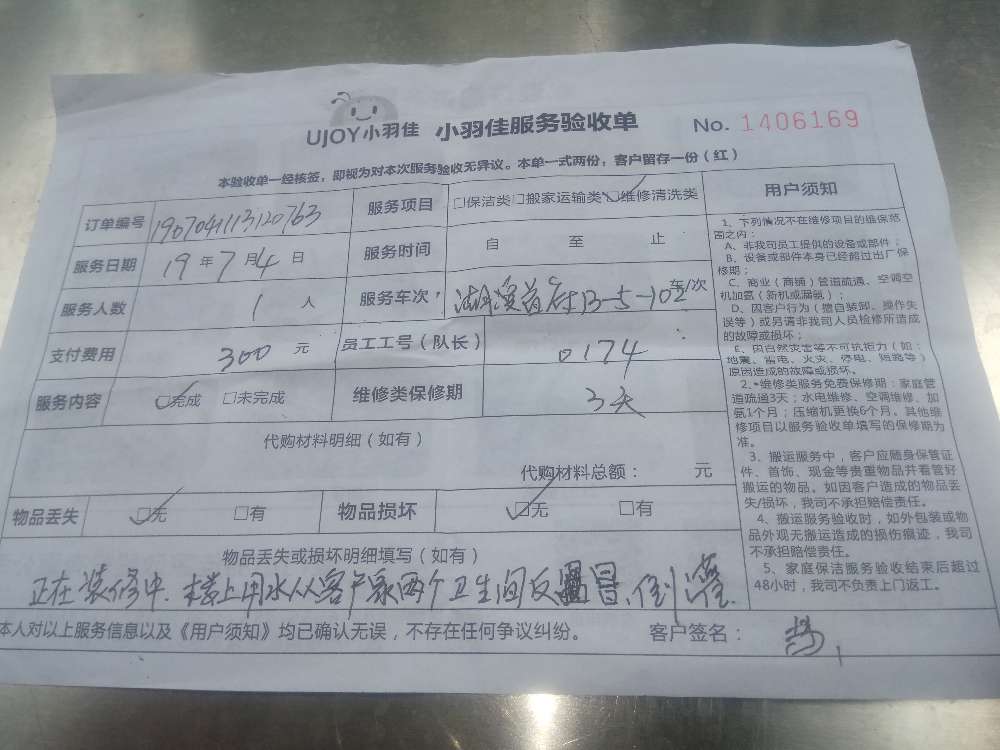 UJOY小羽佳 小羽佳服务验收单 No. 1406169
本验收单一经核签，即视为对本次服务验收无异议。本单一式两份，客户留存一份（红）
订单编号 190704113120763 服务项目 □保洁类□搬家运输类☑维修清洗类
服务日期 19年7月4日 服务时间 自 至 止
服务人数 1 人 服务车次 B-5-102 车/次
支付费用 300 元 员工工号（队长） 0174
服务内容 ☑完成 □未完成 维修类保修期 3天
代购材料明细（如有）
代购材料总额： 元
物品丢失 ☑无 □有 物品损坏 ☑无 □有
物品丢失或损坏明细填写（如有）
正在装修中，楼上用水从客户家两个卫生间反冒、倒灌.
本人对以上服务信息以及《用户须知》均已确认无误，不存在任何争议纠纷。 客户签名：
用户须知
1、下列情况不在维修项目的维保范
围之内：
A、非我司员工提供的设备或部件；
B、设备或部件本身已经超过出厂保
修期；
C、商业（商铺）管道疏通、空调空
机加氨（新机或漏氨）；
D、因客户行为（擅自装卸、操作失
误等）或另请非我司人员检修所造成
的故障或损坏；
E、因自然灾害等不可抗拒力（如：
地震、雷电、火灾、停电、短路等）
原因造成的故障或损坏。
2、维修类服务免费保修期：家庭管
道疏通3天；水电维修、空调维修、加
氨1个月；压缩机更换6个月。其他维
修项目以服务验收单填写的保修期为
准。
3、搬运服务中，客户应随身保管证
件、首饰、现金等贵重物品并看管好
搬运的物品。如因客户造成的物品丢
失/损坏，我司不承担赔偿责任。
4、搬运服务验收时，如外包装或物
品外观无搬运造成的损伤痕迹，我司
不承担赔偿责任。
5、家庭保洁服务验收结束后超过
48小时，我司不负责上门返工。